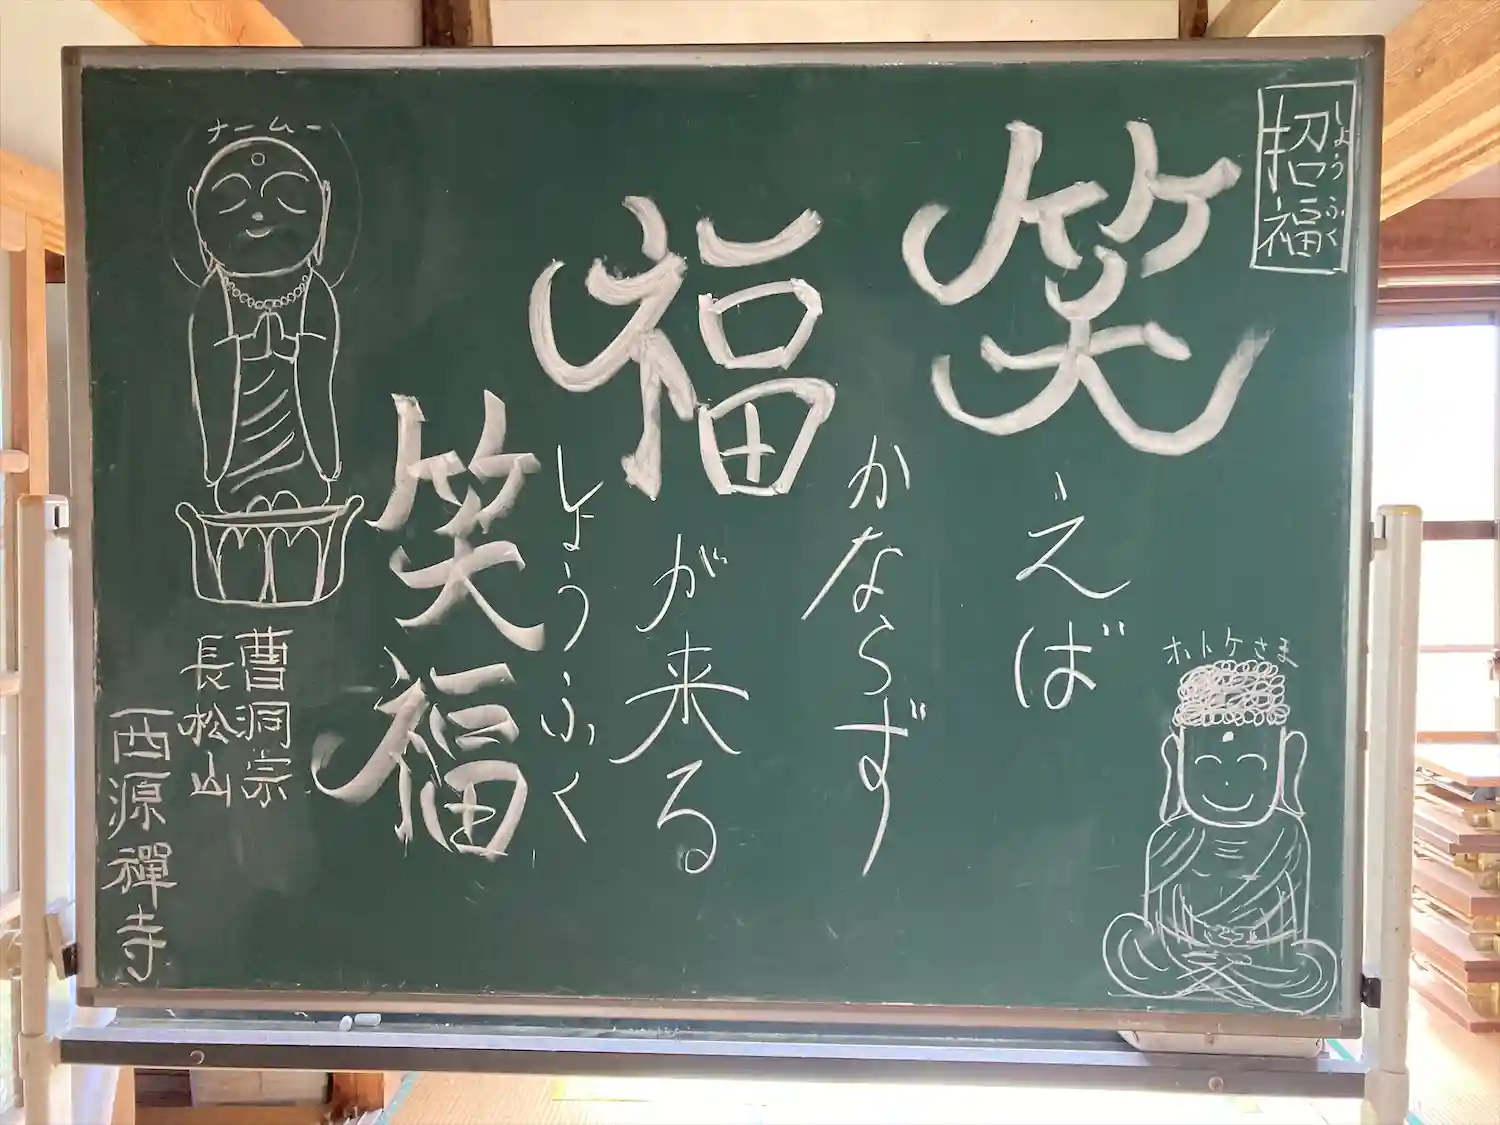 招福
しょうふく
笑えば
かならず
福が来る
しょうふく
笑福
ホトケさま
ナームー
曹洞宗
長松山
西源禪寺